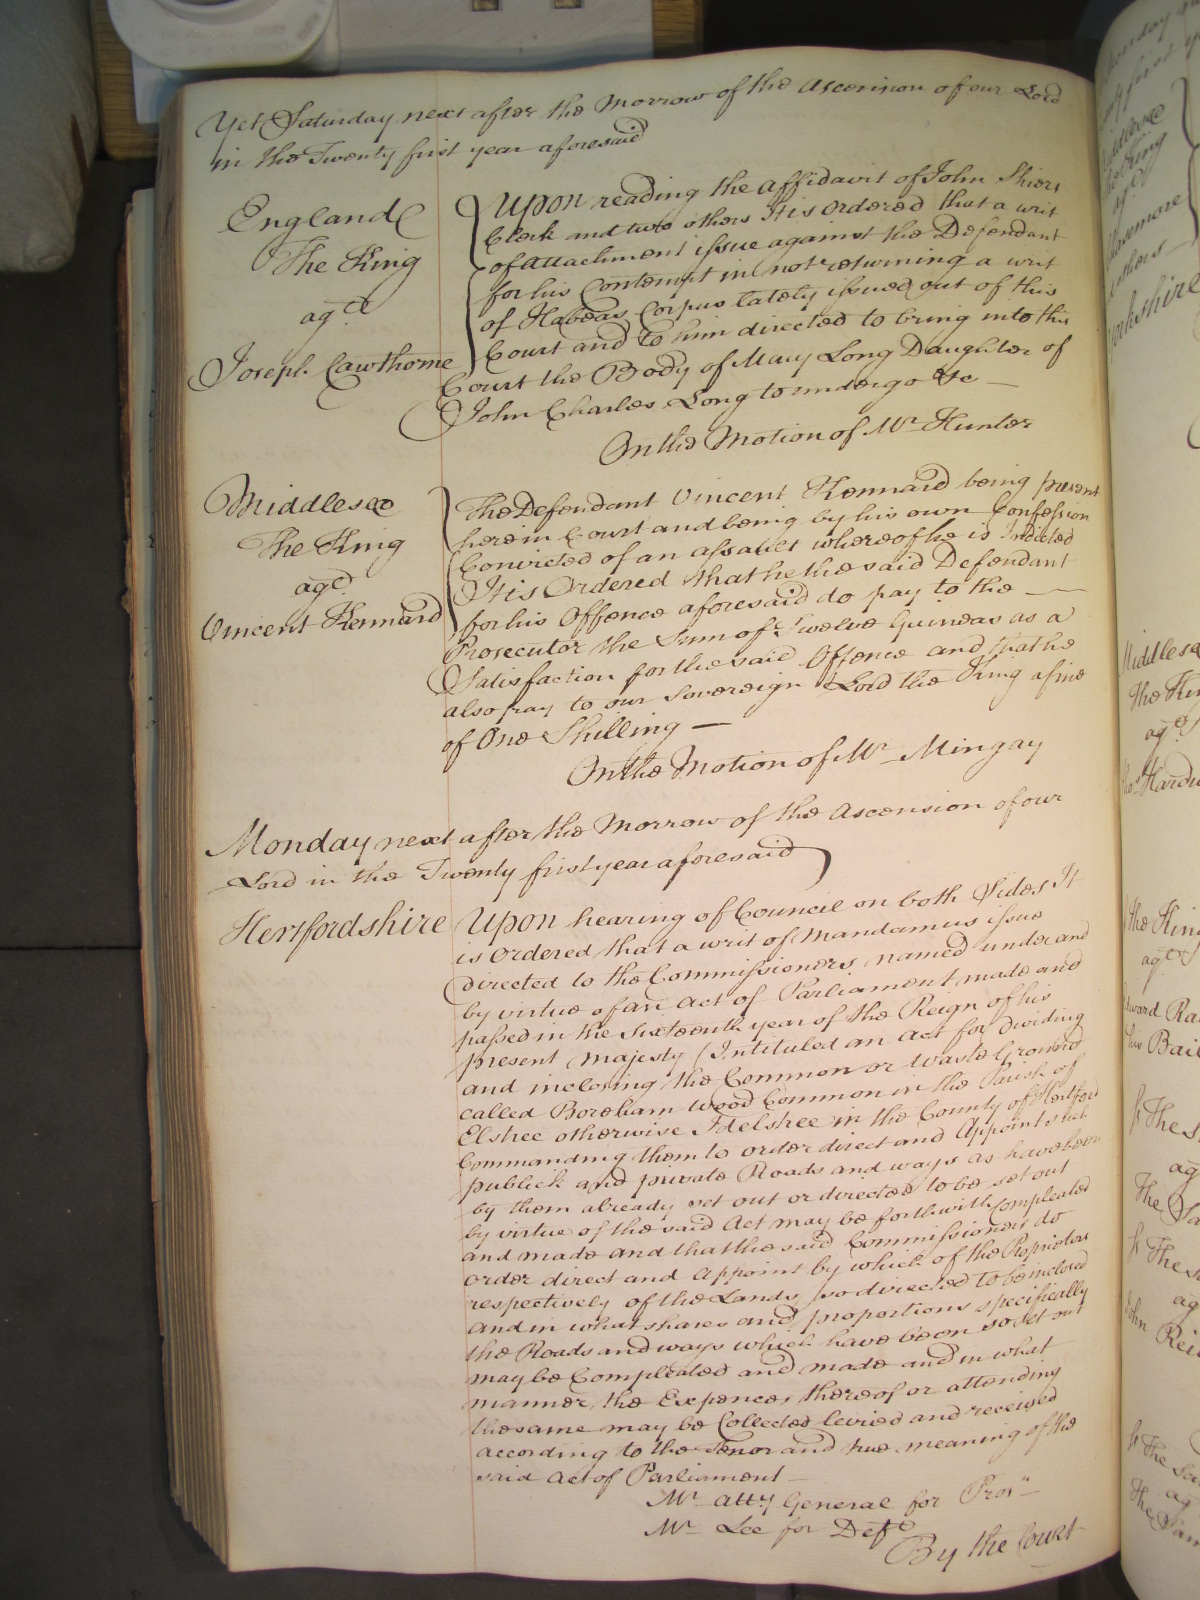 Yet Saturday next after the Morrow of the Ascension of our Lord
in the Twenty first year aforesaid
England
The King
agt
Joseph Cawthorne
Upon reading the Affidavit of John Shiers
Clerk and two others It is Ordered that a writ
of Attachment issue against the Defendant
for his Contempt in not returning a writ
of Habeas Corpus lately issued out of this
Court and to him directed to bring into this
Court the Body of Mary Long Daughter of
John Charles Long to undergo &c —
On the Motion of Mr Hunter
Middlesex
The King
agt
Vincent Kennard
The Defendant Vincent Kennard being present
here in Court and being by his own Confession
Convicted of an assault whereof he is Indicted
It is Ordered that he the said Defendant
for his Offence aforesaid do pay to the —
Prosecutor the Sum of Twelve Guineas as a
Satisfaction for the said Offence and that he
also pay to our Sovereign Lord the King a fine
of One Shilling —
On the Motion of Mr Mingay
Monday next after the Morrow of the Ascension of our
Lord in the Twenty first year aforesaid
Hertfordshire
Upon hearing of Council on both Sides It
is Ordered that a writ of Mandamus issue
directed to the Commissioners named under and
by virtue of an Act of Parliament made and
passed in the Sixteenth year of the Reign of his
present Majesty (Intituled an Act for Dividing
and inclosing the Common or Waste Ground
called Boreham Wood Common in the Parish of
Elstree otherwise Idelstree in the County of Hertford
Commanding them to order direct and Appoint such
publick and private Roads and ways as have been
by them already set out or directed to be set out
by virtue of the said Act may be forthwith Compleated
and made and that the said Commissioners do
order direct and appoint by which of the Proprietors
respectively of the Lands so directed to be inclosed
and in what shares and proportions specifically
the Roads and ways which have been so set out
may be Compleated and made and in what
manner the Expences thereof or attending
the same may be Collected levied and received
according to the Tenor and true meaning of the
said Act of Parliament —
Mr Atty General for Pros
Mr Lee for Deft
By the Court